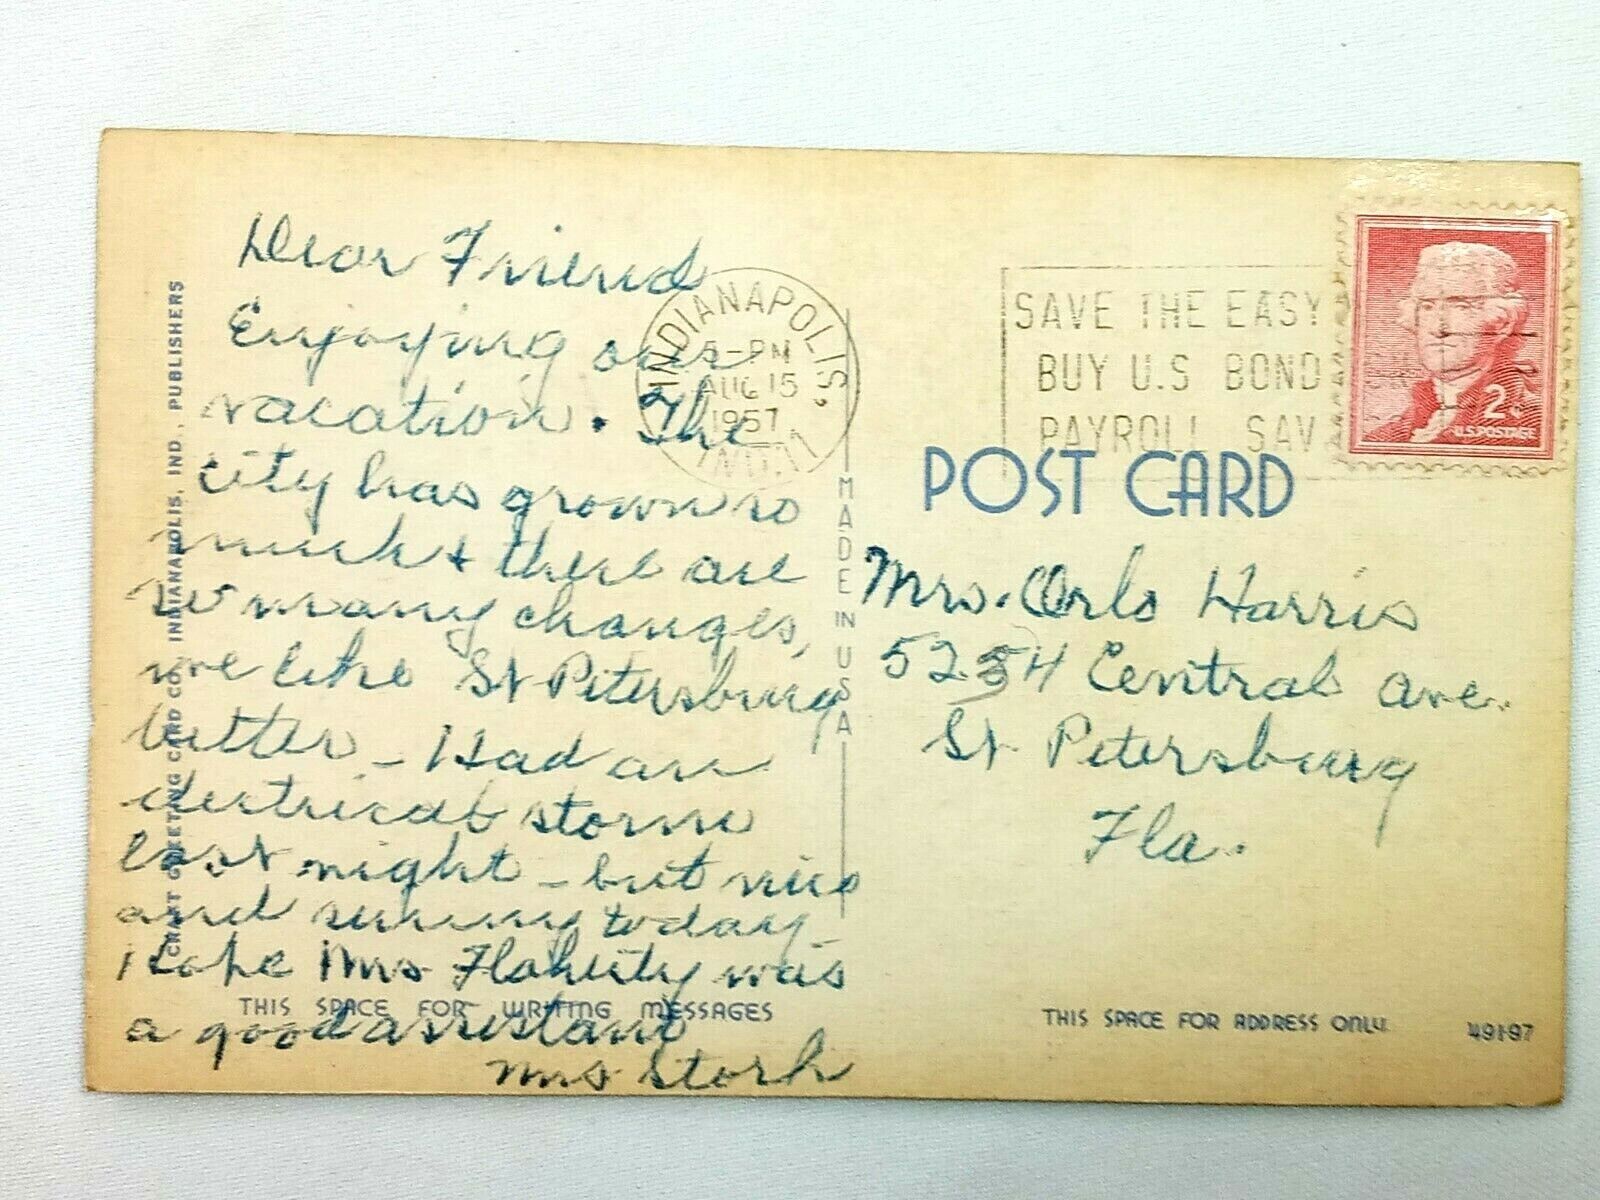 Dear Friend
Enjoying our
vacation. The
city has grown so
much & there are
so many changes,
we like St Petersburg
better - Had an
electrical storm
last night - but nice
and sunny today -
Hope Mrs Flaherty was
a good assistant
Mrs Storh
CRAFT GREETING CARD CO., INDIANAPOLIS, IND., PUBLISHERS
THIS SPACE FOR WRITING MESSAGES
INDIANAPOLIS,
5-PM
AUG 15
1957
IND.
MADE IN U S A
SAVE THE EASY
BUY U.S BOND
PAYROLL SAV
2¢
U.S. POSTAGE
POST CARD
Mrs. Orlo Harris
5254 Central Ave.
St Petersburg
Fla.
THIS SPACE FOR ADDRESS ONLY
49197